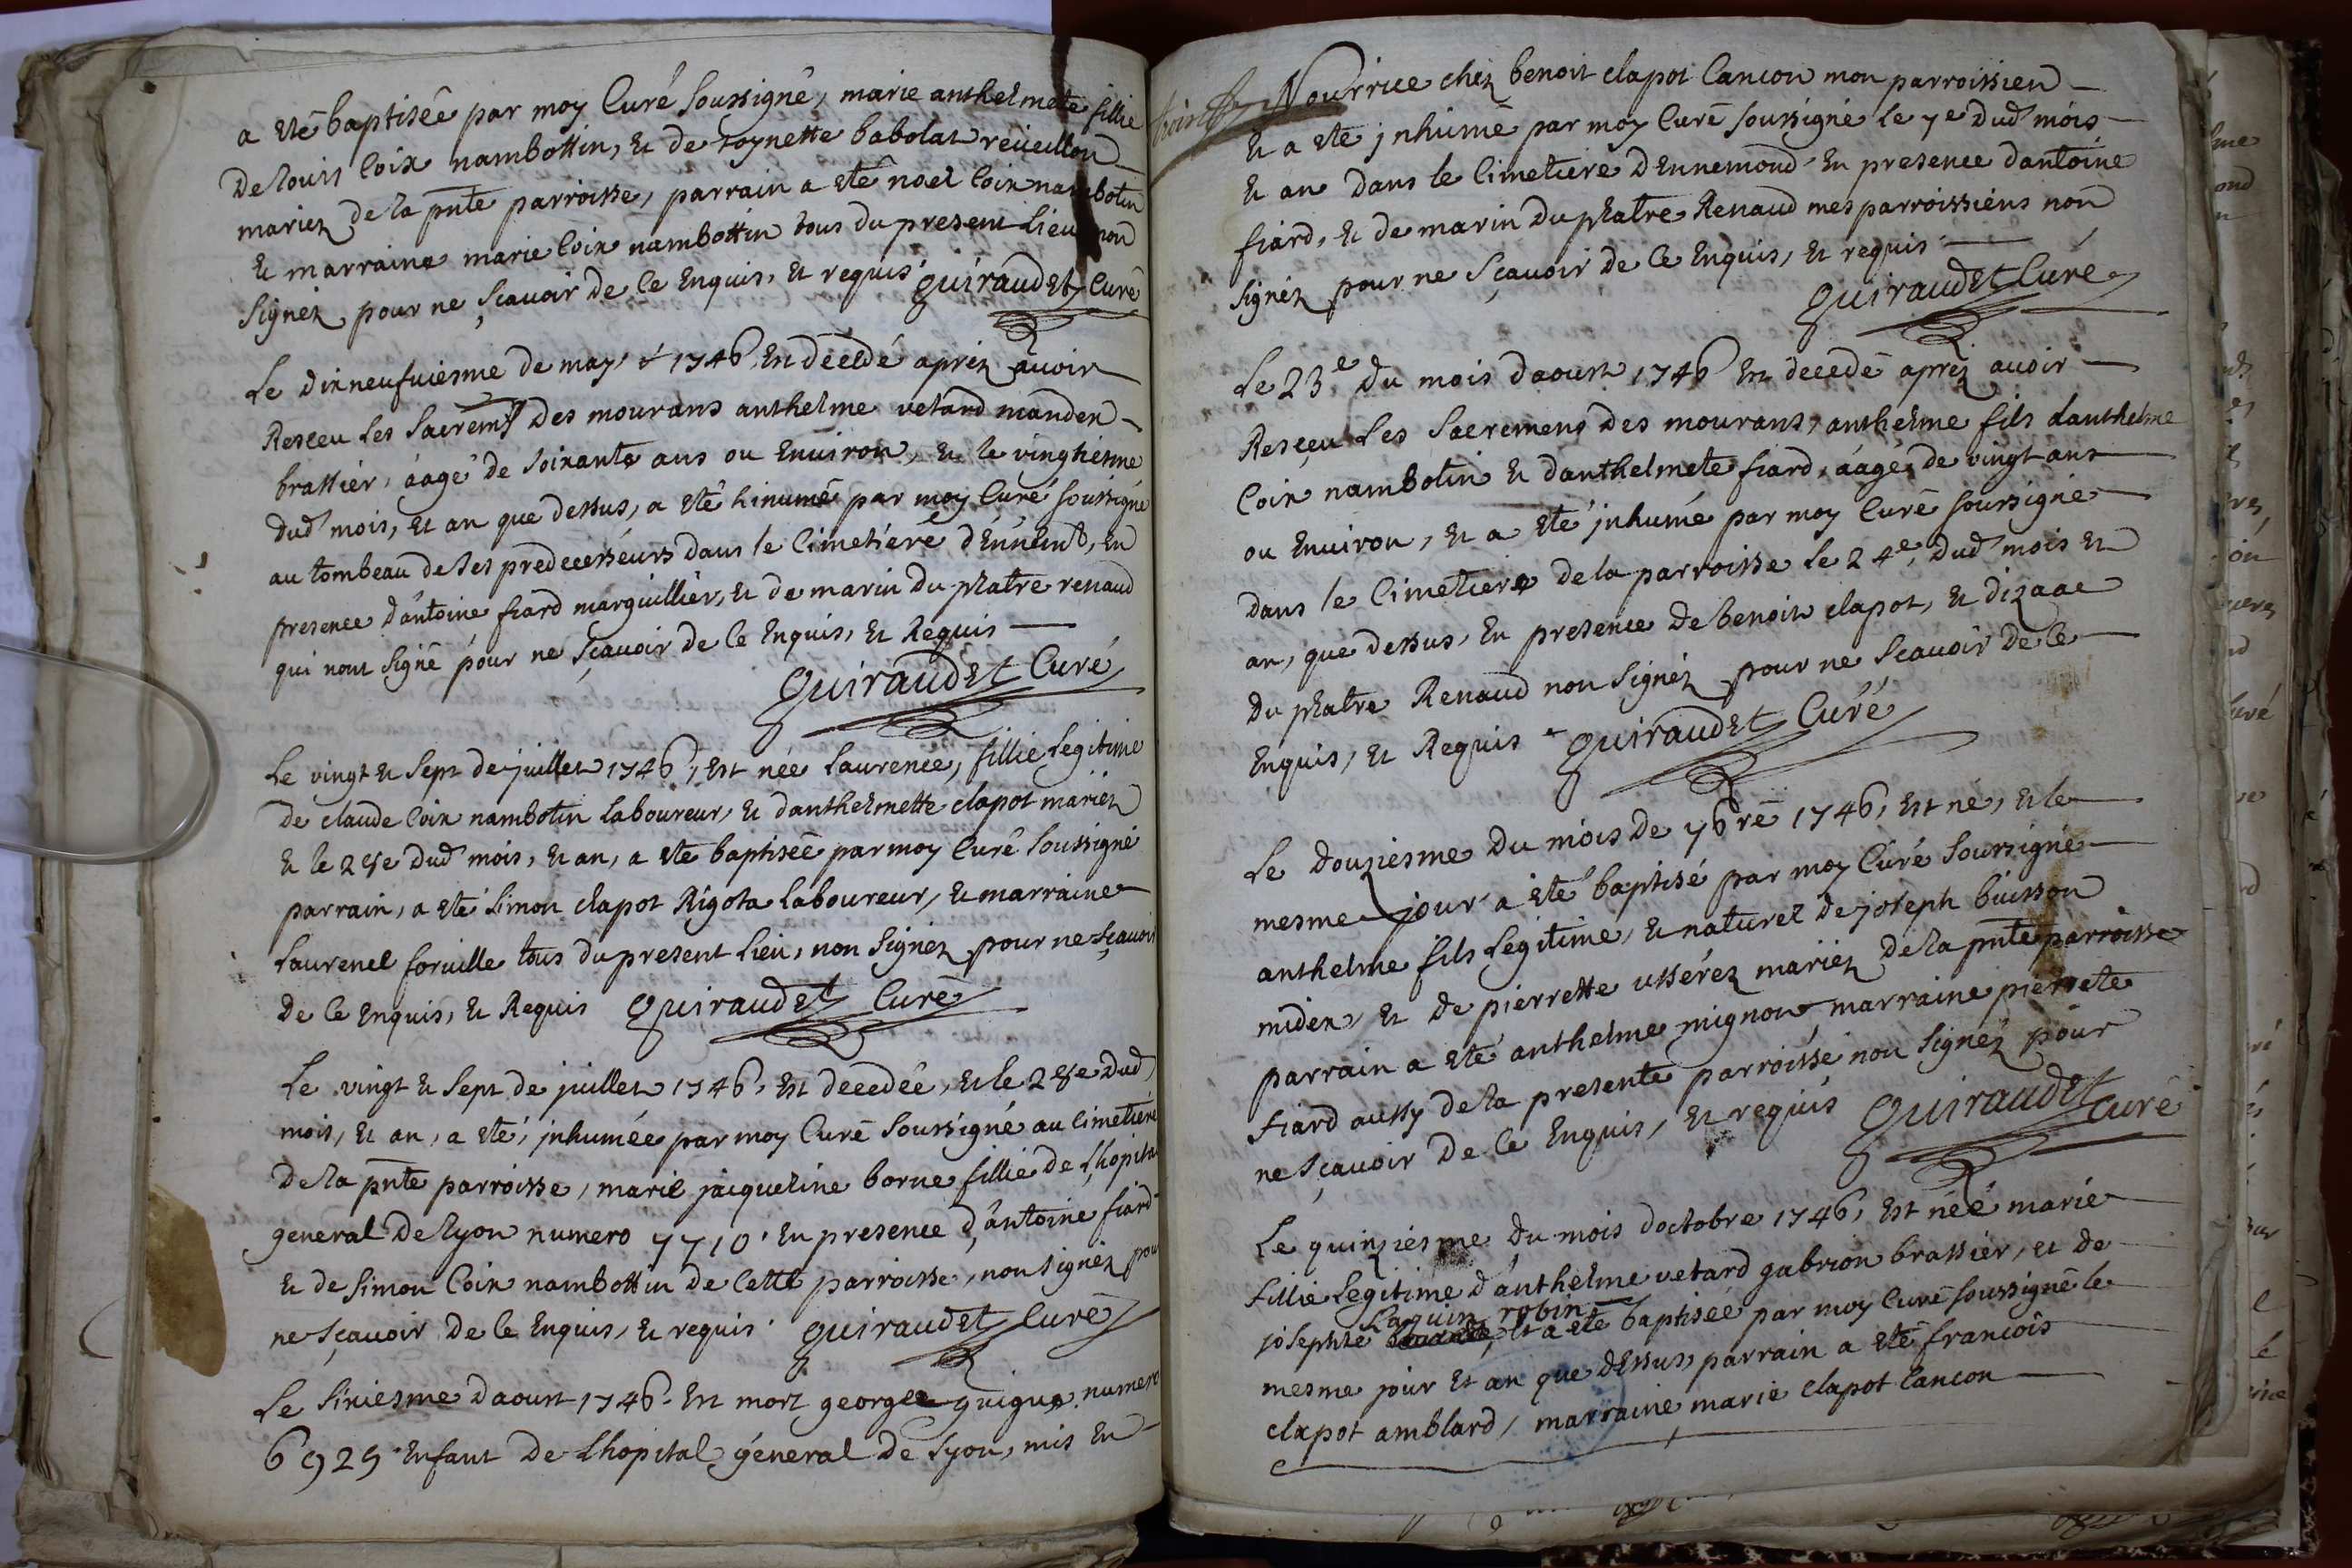 a eté baptiseé par moy Curé soussigné, marie anthelmete fillie
de louis Coix nambottin, et de toynette babolat reüeillon
mariez de la pnte parroisse, parrain a eté noel Coix nambotin
et marraine marie Coix nambottin tous du present lieu non
signez pour ne sçavoir de ce Enquis, et requis Guiraudet Curé
Le dixneufuiesme de may 1746 Est décédé aprez avoir
Resceu les Sacremts des mourans anthelme vetard manden
brassier, áagé de soixante ans ou Environ, et le vinghiesme
dud mois, et an que dessus, a eté hinumé par moy Curé soussigné
au tombeau de ses predecesseurs dans le Cimetiére d'Ennemd, En
presence d'antoine fiard marguillier, et de marin du platre renaud
qui nont signé pour ne sçavoir de ce Enquis, et Requis
Guiraudet Curé
Le vingt et sept de juillet 1746, Est née laurence, fillie legitime
de claude Coix nambotin laboureur, et danthelmette clapot mariez
et le 28e dud mois, et an, a eté baptiseé par moy Curé soussigné
parrain, a eté simon clapot Rigota laboureur, et marraine
laurence foruille tous du present lieu, non signez pour ne sçavoir
de ce Enquis, et Requis Guiraudet Curé
Le vingt et sept de juillet 1746, Est decedée, et le 28e dud
mois, et an, a eté, jnhumée par moy Curé soussigné au Cimetiere
de la pnte parroisse, marie jacqueline borne fillie de Lhopital
general de lyon numero 7710 En presence d'antoine fiard
et de simon Coix nambottin de Cette parroisse, non signez pour
ne sçavoir de ce Enquis, et requis Guiraudet Curé
Le sixiesme daoust 1746 Est mort george guigue numero
6929 Enfant de Lhopital general de lyon, mis En
Nourrice chez benoit clapot Cancon mon parroissien
et a eté jnhumé par moy Curé soussigné le 7e dud mois
et an dans le Cimetiere d'Ennemond En presence dantoine
fiard, et de marin du platre Renaud mes parroissiens non
signez pour ne sçavoir de ce Enquis, et requis
Guiraudet Curé
Le 23e du mois daoust 1746 Est décedé aprez avoir
Resçeu les sacremens des mourans, anthelme fils danthelme
Coix nambotin et danthelmete fiard, áagé de vingt ans
ou Environ, et a eté jnhumé par moy Curé soussigné
dans le Cimetiere de la parroisse le 24e dud mois et
an, que dessus, En presence de benoit clapot, et dizaac
du platre Renaud non signez pour ne sçavoir de ce
Enquis, et Requis Guiraudet Curé
Le douziesme du mois de 7bre 1746, Est né, et le
mesme jour a eté baptisé par moy Curé soussigné
anthelme fils legitime, et naturel de joseph buisson
miden, et de pierrette usseréz mariez de la pnte parroisse
parrain a eté anthelme mignon marraine pierrete
fiard aussy de la presente parroisse non signez pour
ne sçavoir de ce Enquis, et requis Guiraudet
Curé
Le quinziesme du mois doctobre 1746, Est née marie
fillie legitime d'anthelme vetard gabrion brassier, et de
Laquin robin
josephte et a eté baptisée par moy Curé soussigné le
mesme jour et an que dessus, parrain a eté francois
clapot amblard, marraine marie clapot Cancon